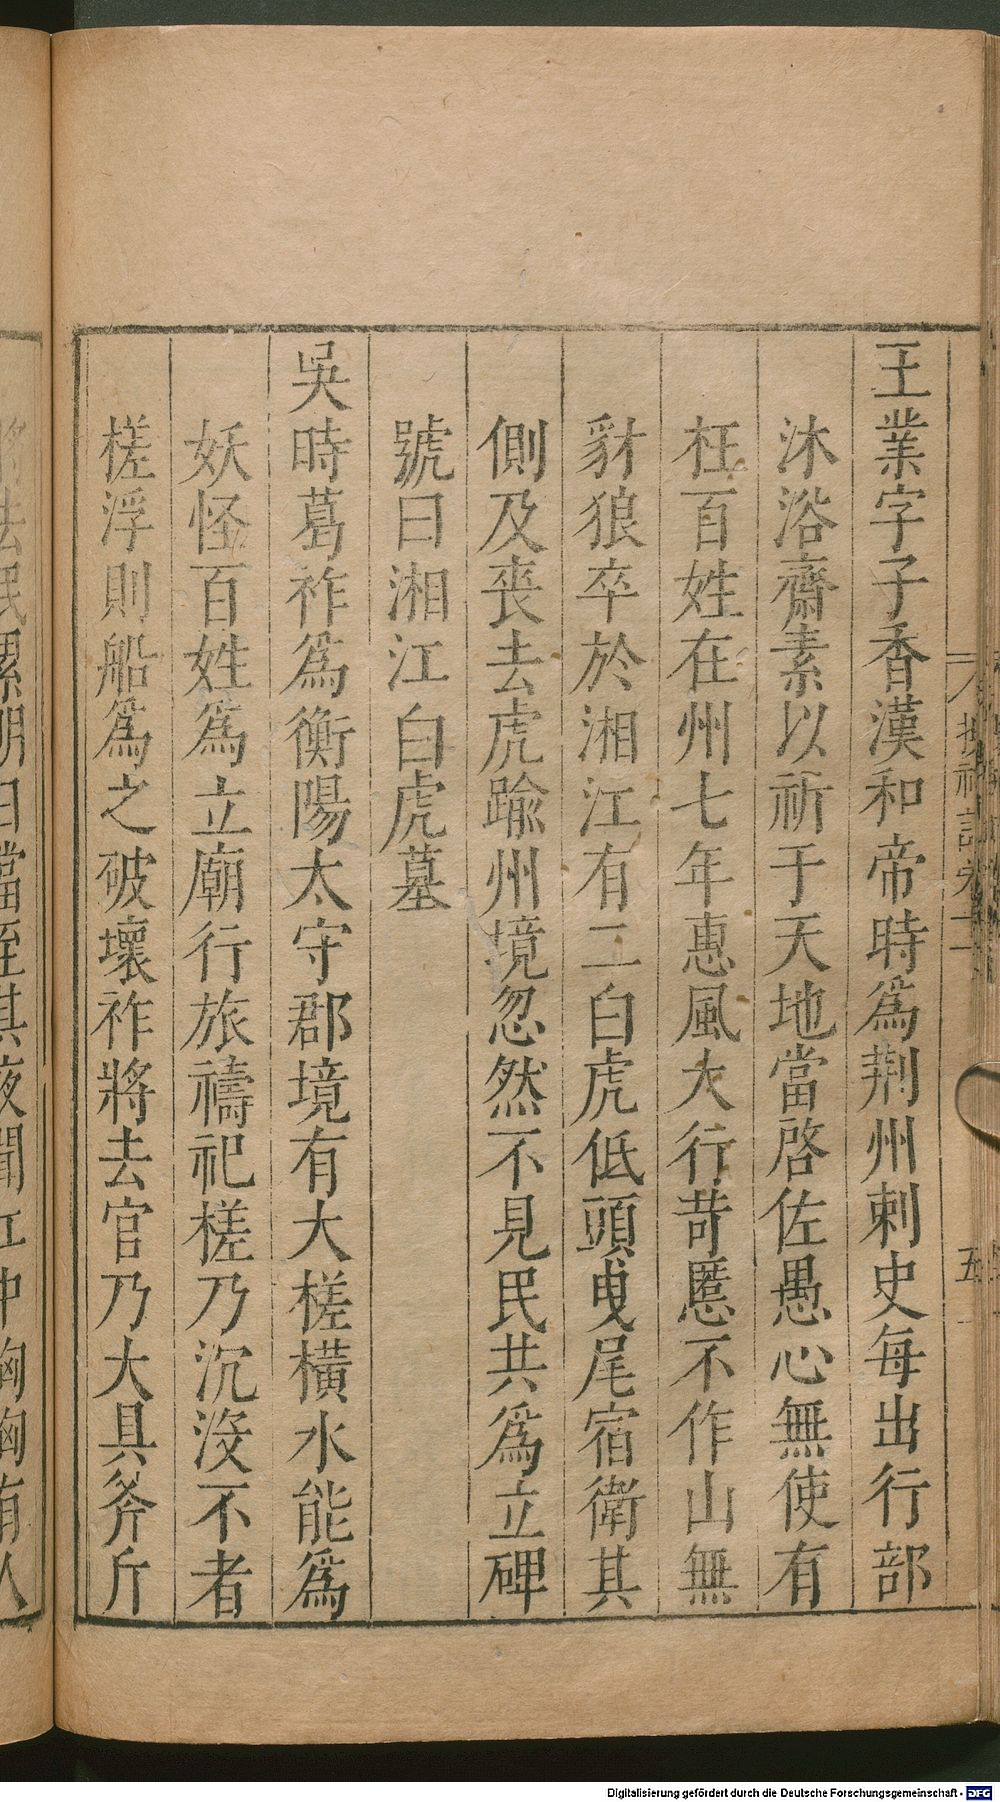 王業字子香漢和帝時爲荆州刺史每出行部
沐浴齋素以祈于天地當啓佐愚心無使有
枉百姓在州七年惠風大行苛慝不作山無
豺狼卒於湘江有二白虎低頭曳尾宿衛其
側及喪去虎踰州境忽然不見民共爲立碑
號曰湘江白虎墓
吳時葛祚爲衡陽太守郡境有大槎橫水能爲
妖怪百姓爲立廟行旅禱祀槎乃沉沒不者
槎浮則船爲之破壞祚將去官乃大具斧斤
五
Digitalisierung gefördert durch die Deutsche Forschungsgemeinschaft - DFG